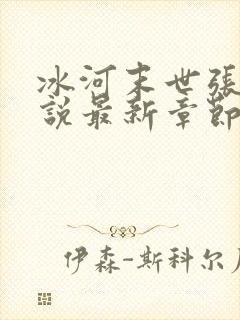 冰河末世張
說最新章節
伊森-斯科尔